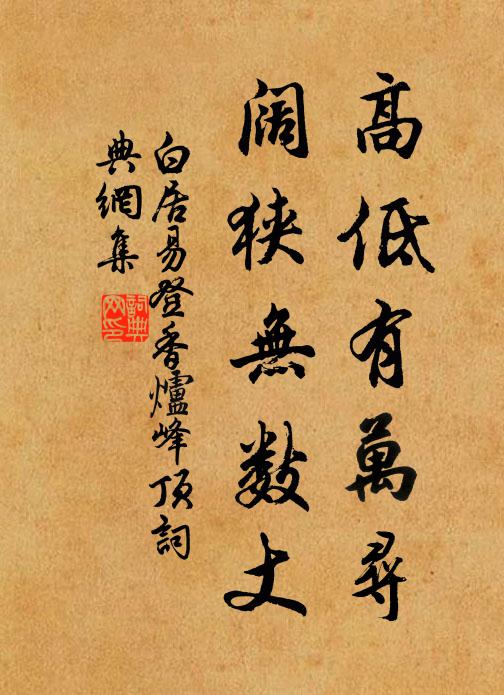 高低有萬尋
闊狹無數丈
白居易登香爐峰頂詞
典網集
詞典網印